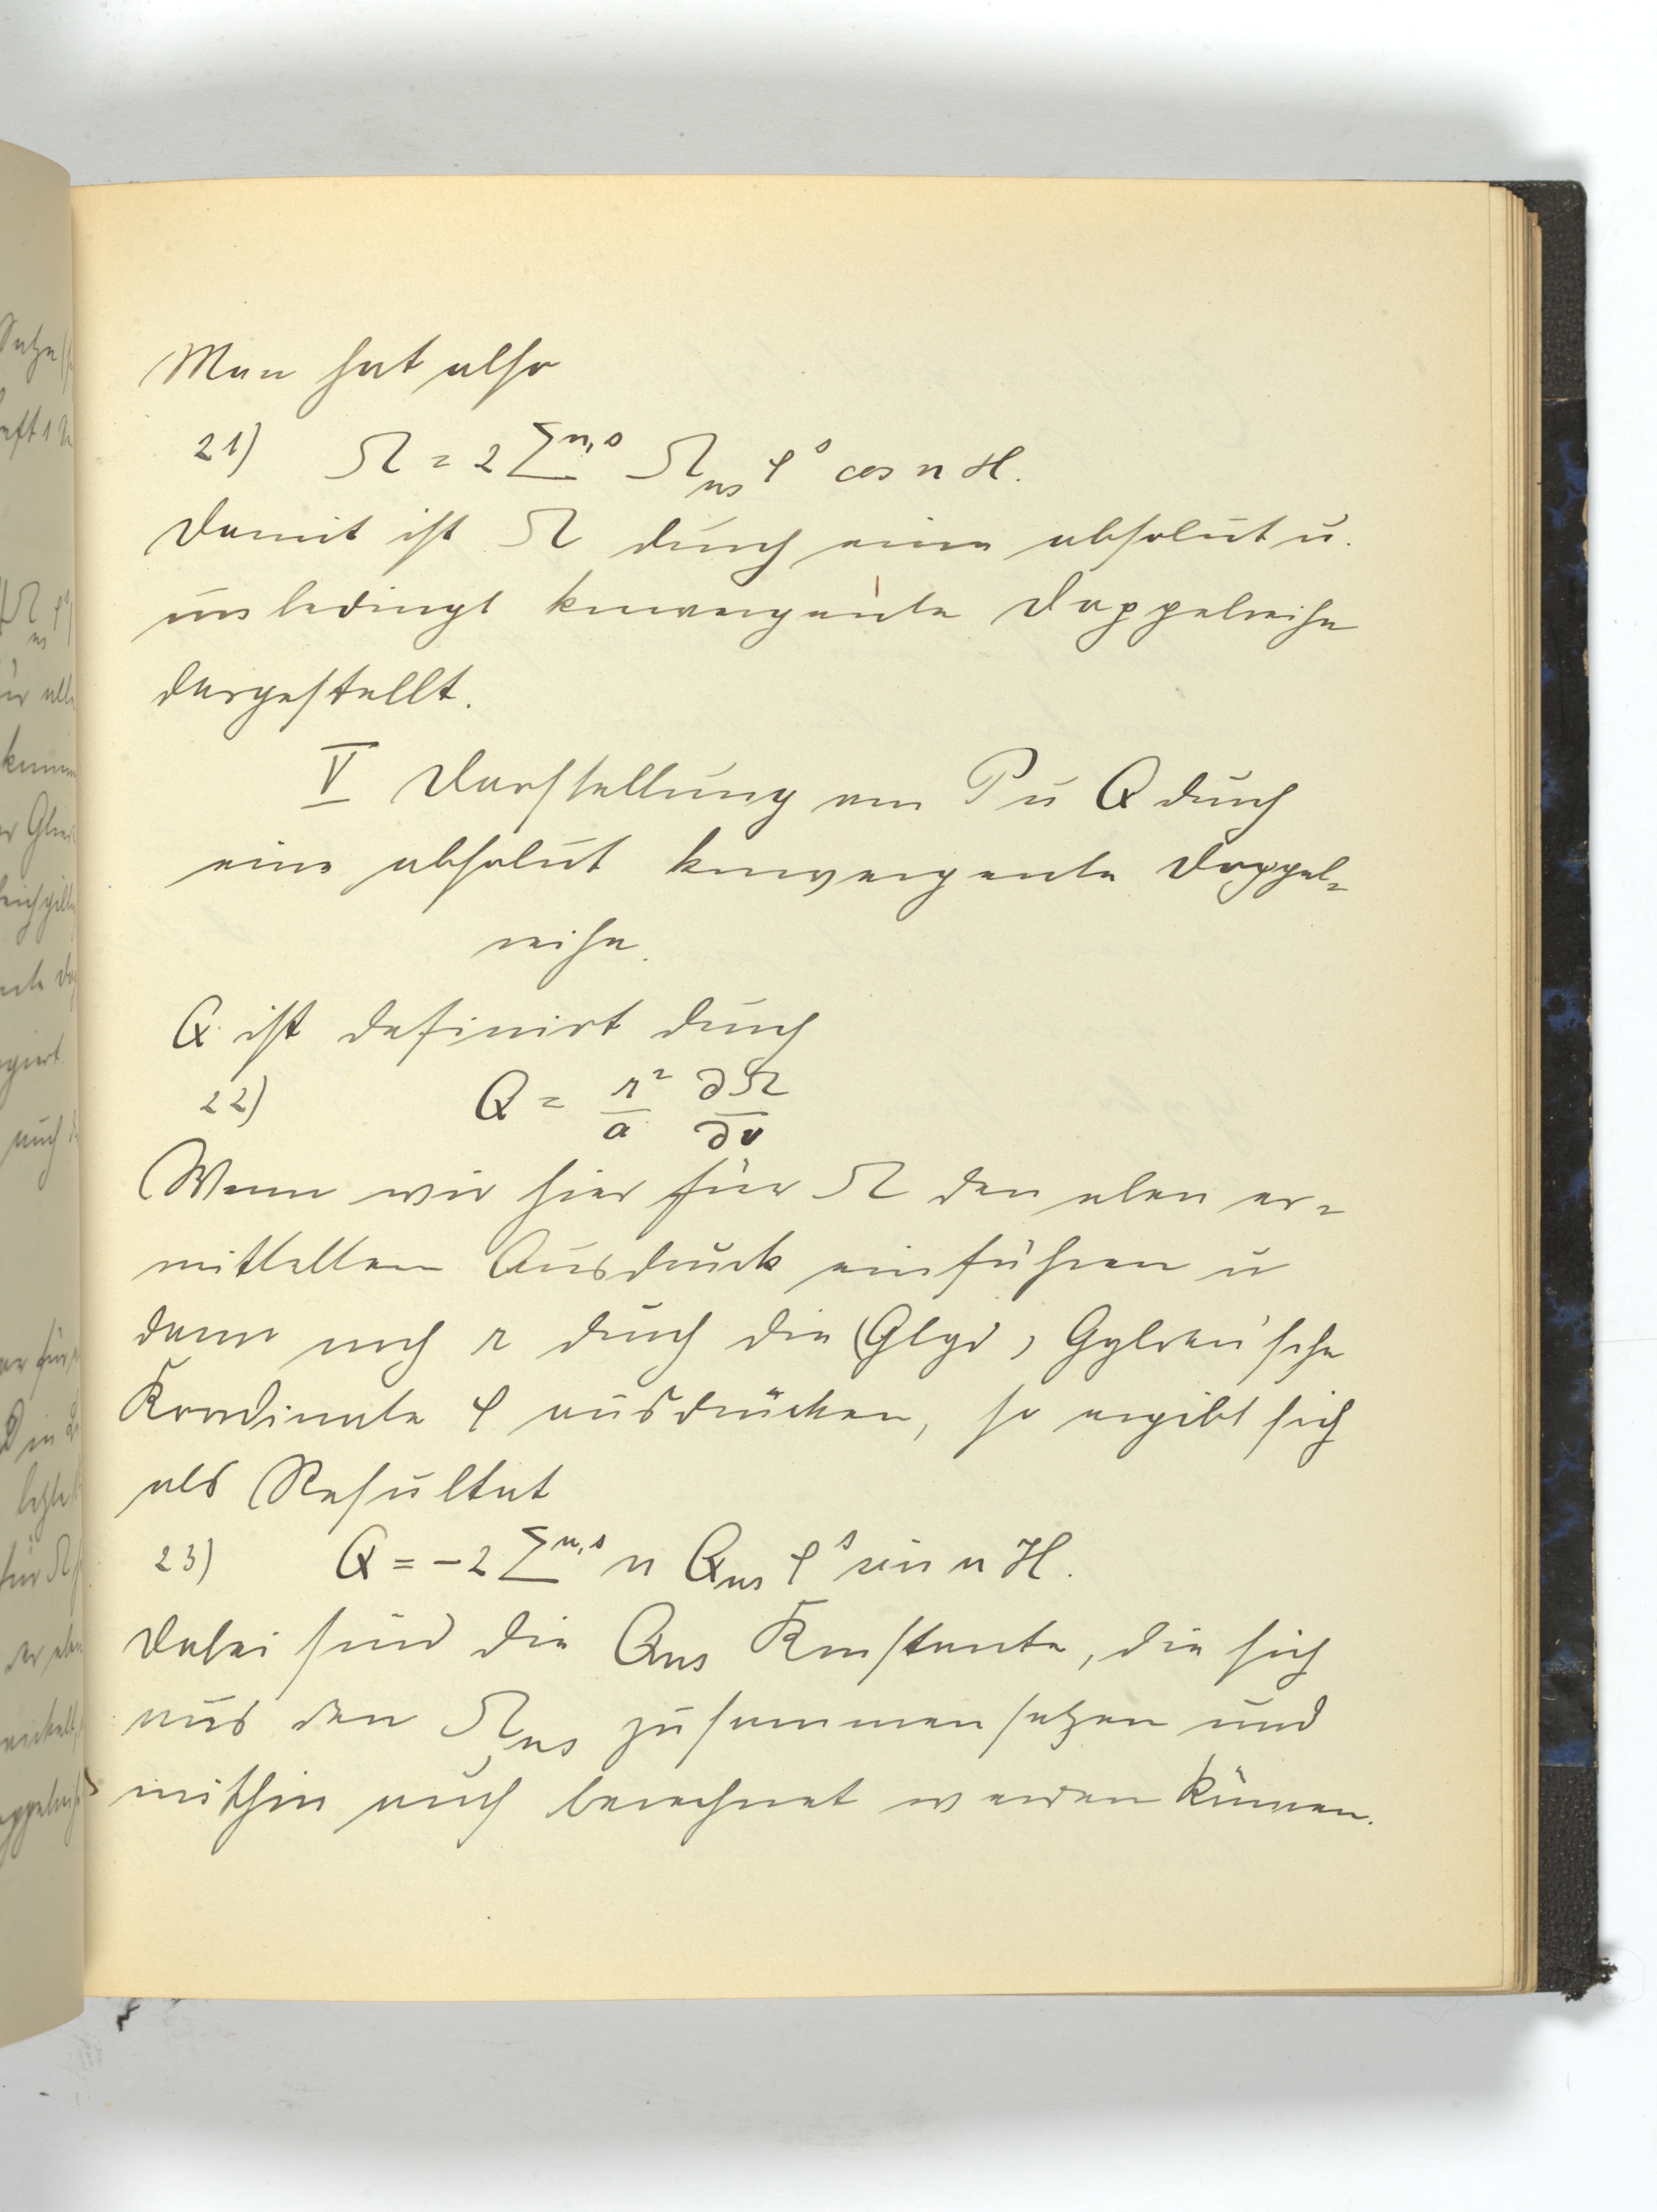 Man hat also
21) Ω = 2 Σⁿ˒ˢ Ω_ns ρˢ cos n H.
Damit ist Ω durch eine absolut u.
unbedingt konvergente Doppelreihe
dargestellt.
V Darstellung von P u Q durch
eine absolut konvergente Doppel=
reihe.
Q ist definirt durch
22) Q = r²/a ∂Ω/∂v
Wenn wir hier für Ω den eben er=
mittelten Ausdruck einführen u
dann noch r durch die Gylden'sche
Koordinate ρ ausdrücken, so ergibt sich
als Resultat
23) Q = -2 Σⁿ˒ˢ n Q_ns ρˢ sin n H.
Dabei sind die Q_ns Konstante, die sich
aus den Ω_ns zusammensetzen und
mithin auch berechnet werden können.